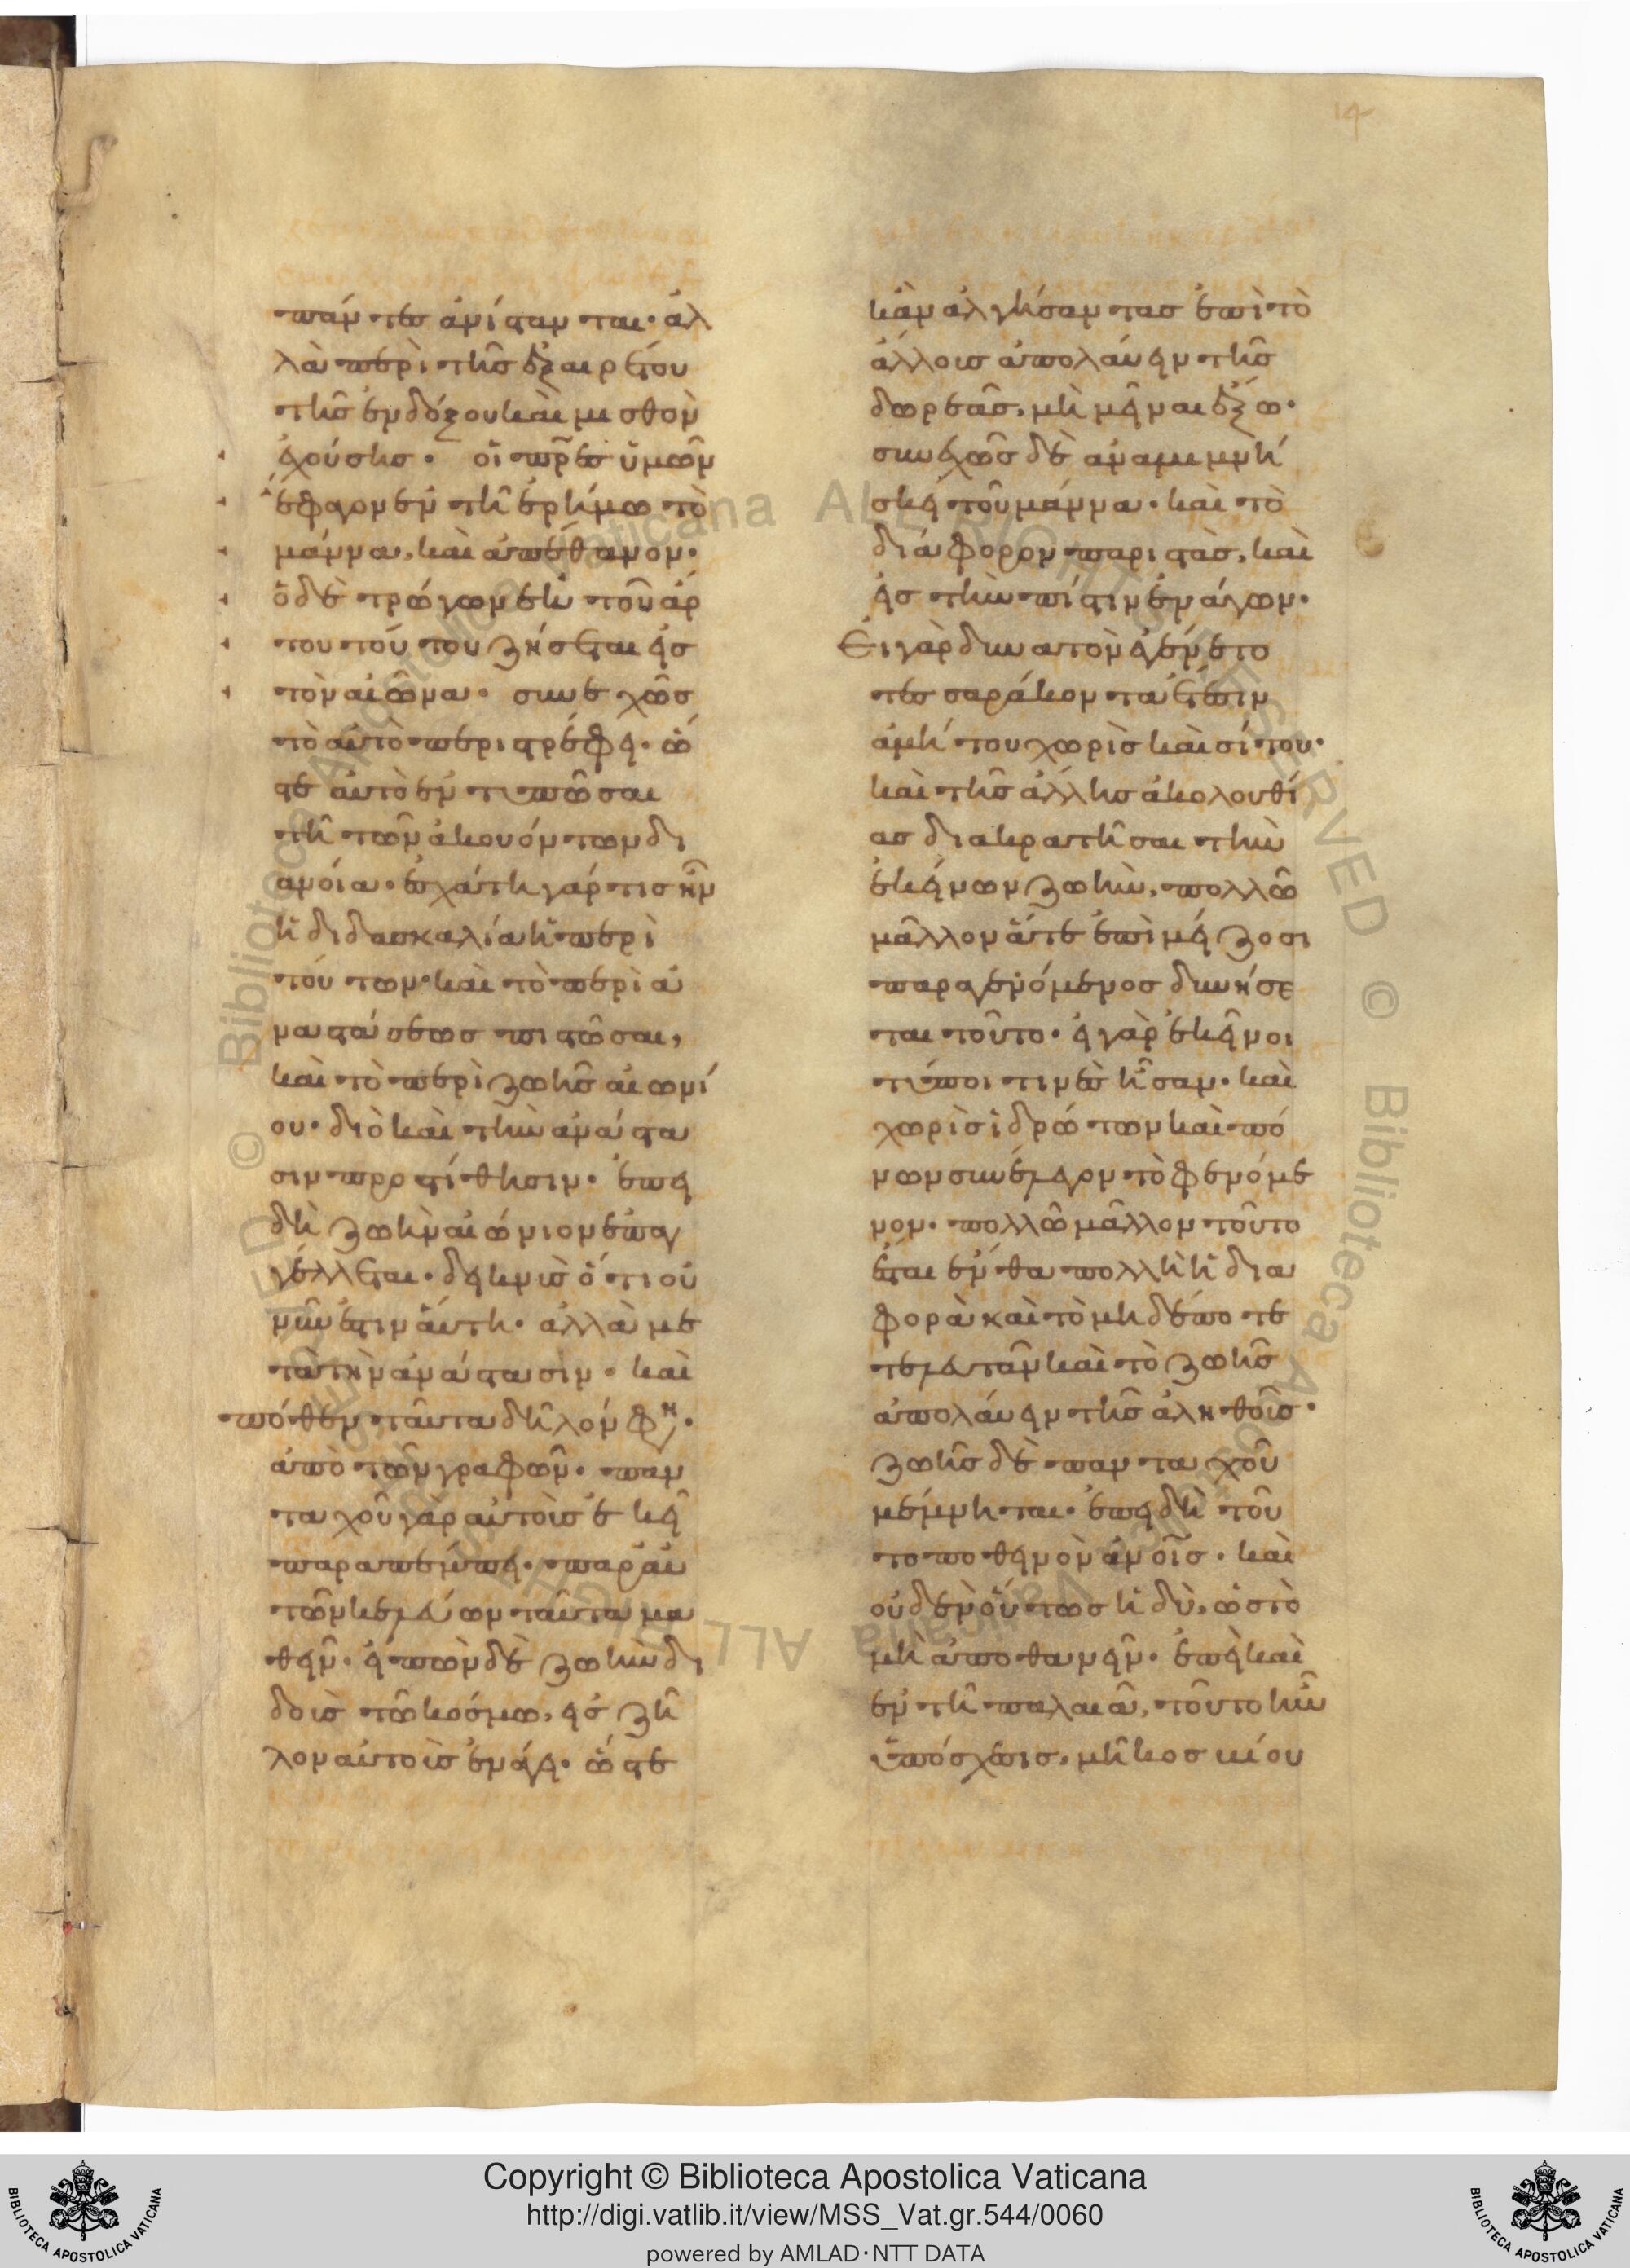 14
πάντες ἀνίστανται· ἀλ
λὰ περὶ τῆς ἐξαιρέτου
τῆς ἐνδόξου καὶ μισθὸν
ἐχούσης· οἱ πρ̅ες ὑμῶν
ἔφαγον ἐν τῇ ἐρήμω τὸ
μάννα, καὶ ἀπέθανον·
ὁ δὲ τρώγων ἐκ τοῦ ἄρ
του τούτου ζήσεται εἰς
τὸν αἰῶνα· συνεχῶς
τὸ αὐτὸ περιστρέφει· ὥ
στε αὐτὸ ἐντυπῶσαι
τῇ τῶν ἀκουόντων δι
ανοία· ἐσχάτη γάρ τις ἦν
ἡ διδασκαλία ἡ περὶ
τούτων· καὶ τὸ περὶ ἀ
ναστάσεως πιστῶσαι,
καὶ τὸ περὶ ζωῆς αἰωνί
ου· διὸ καὶ τὴν ἀνάστα
σιν προστίθησιν· ἐπει
δὴ ζωὴν αἰώνιον ἐπαγ
γέλλεται· δεικνὺς ὅτι οὐ
νῦν ἐστιν αὕτη· ἀλλὰ με
τὰ τὴν ἀνάστασιν· καὶ
πόθεν ταῦτα δῆλόν φη·
ἀπὸ τῶν γραφῶν· παν
ταχοῦ γὰρ αὐτοὺς ἐκεῖ
παραπέμπει· παρ' αὐ
τῶν κελεύων ταῦτα μα
θεῖν· εἰπὼν δὲ ζωὴν δι
δοὺς τῶ κόσμω, εἰς ζῆ
λον αὐτοὺς ἐνάγει· ὥστε
κἂν ἀλγήσαντας ἐπὶ τὸ
ἄλλους ἀπολαύειν τῆς
δωρεᾶς, μὴ μεῖναι ἔξω·
συνεχῶς δὲ ἀναμιμνή
σκει τοῦ μάννα· καὶ τὸ
διάφορον παριστὰς, καὶ
εἰς τὴν πίστιν ἐνάγων·
Ει γὰρ δυνατὸν ἐγένετο
τεσσαράκοντα ἔτεσιν
ἀμήτου χωρὶς καὶ σίτου·
καὶ τῆς ἄλλης ἀκολουθί
ας διακρατῆσαι τὴν
ἐκείνων ζωὴν, πολλῶ
μᾶλλον ἅτε ἐπὶ μείζοσι
παραγενόμενος δυνήσε
ται τοῦτο· εἰ γὰρ ἐκεῖνοι
τύποι τινὲς ἦσαν· καὶ
χωρὶς ἱδρώτων καὶ πό
νων συνέλεγον τὸ φαινόμε
νον· πολλῶ μᾶλλον τοῦτο
ἔσται ἔνθα πολλὴ ἡ δια
φορὰ καὶ τὸ μηδέποτε
τελευτᾶν καὶ τὸ ζωῆς
ἀπολαύειν τῆς ἀληθοῦς·
ζωῆς δὲ πανταχοῦ
μέμνηται· ἐπειδὴ τοῦ
το ποθεινὸν ἀν̅οις· καὶ
οὐδὲν οὕτως ἡδὺ, ὡς τὸ
μὴ ἀποθανεῖν· ἐπεὶ καὶ
ἐν τῇ παλαιᾶ, τοῦτο ἦν
ὑπόσχεσις, μῆκος βίου
Copyright © Biblioteca Apostolica Vaticana
http://digi.vatlib.it/view/MSS_Vat.gr.544/0060
powered by AMLAD·NTT DATA